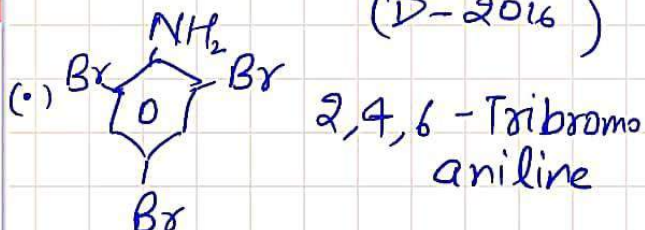 (D-2016)
NH₂
(•) Br Br
2,4,6 - Tribromo
aniline
Br